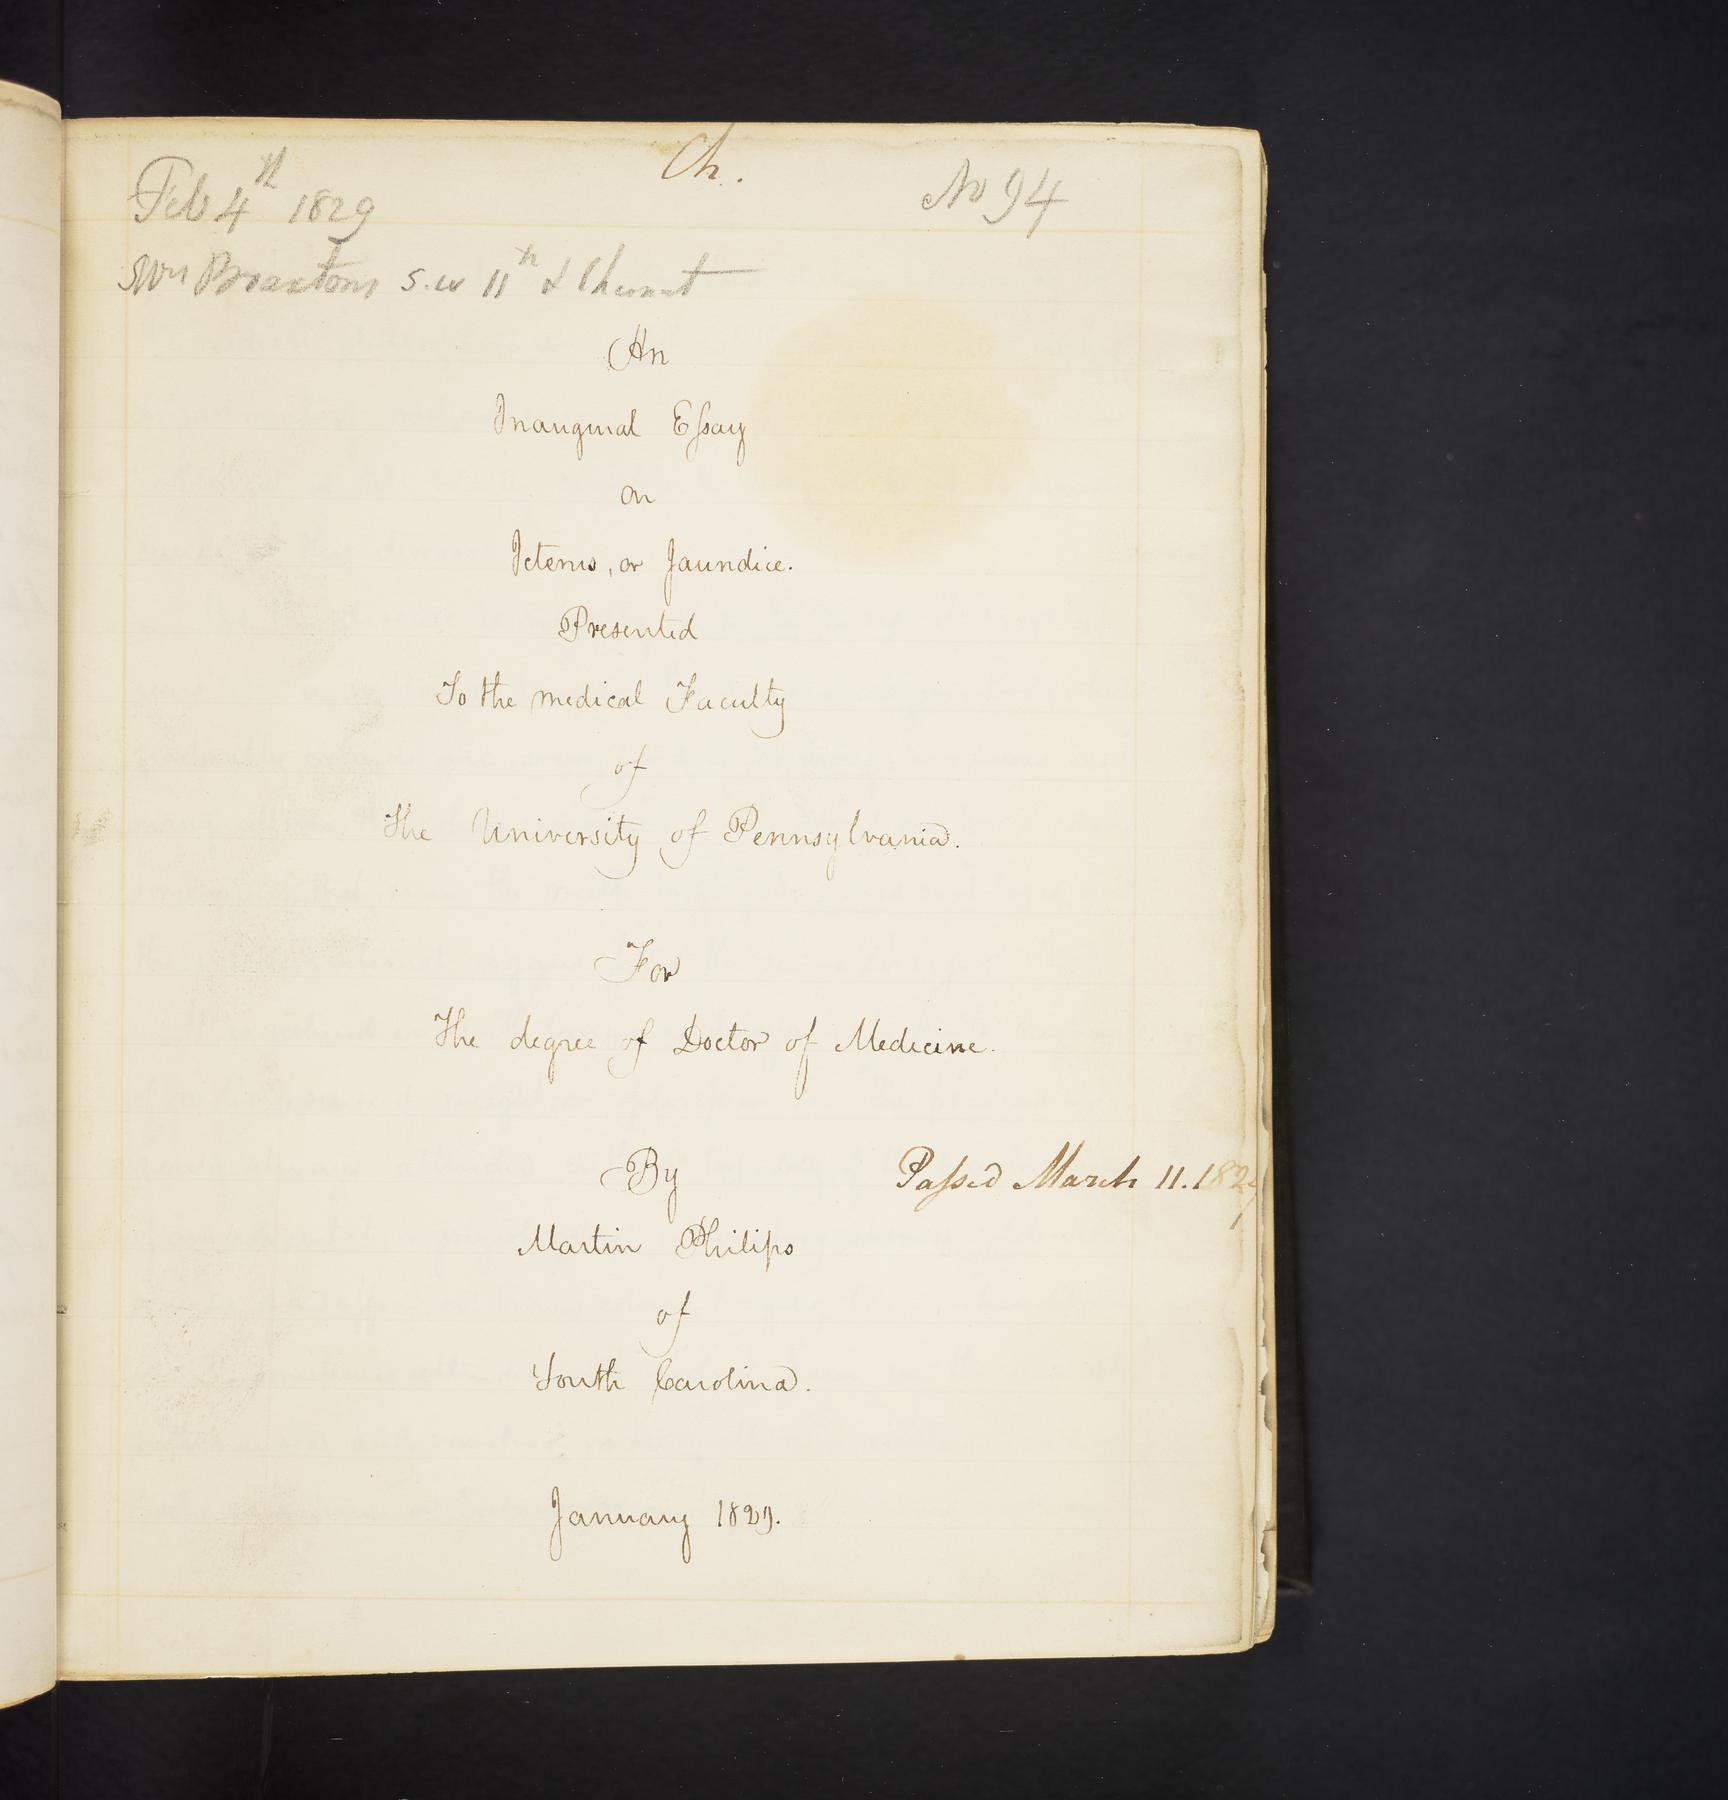 Ch.
Feb 4th 1829
No 94
S.W 11th & Chesnut
An
Inaugural Essay
on
Icterus, or Jaundice.
Presented
To the medical Faculty
of
the University of Pennsylvania.
For
The degree of Doctor of Medicine.
By
Passed March 11. 1829
Martin Philips
of
South Carolina.
January 1829.